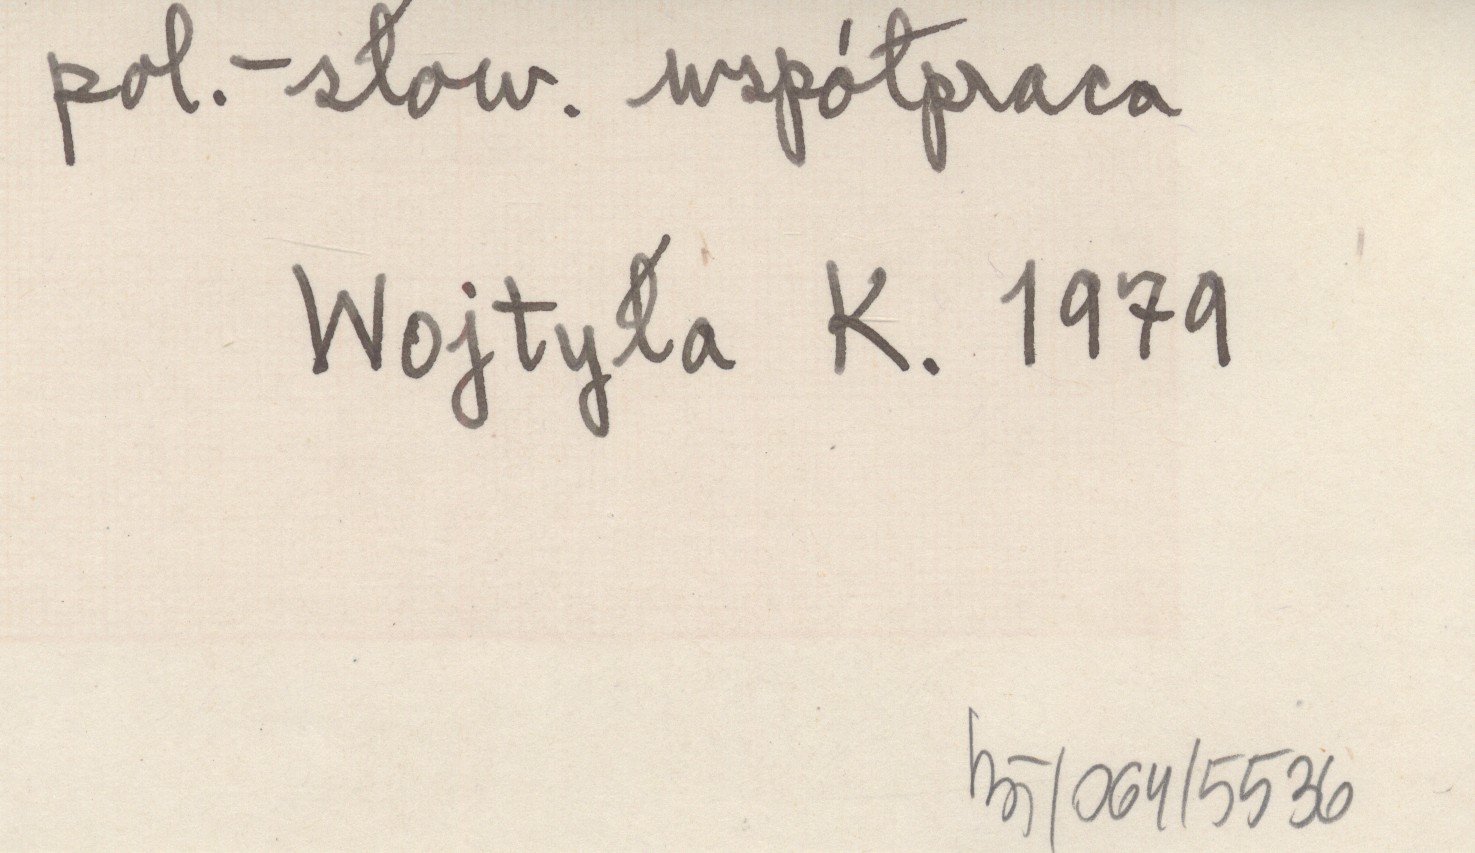 pol.-słow. współpraca
Wojtyła K. 1979
/064/5536